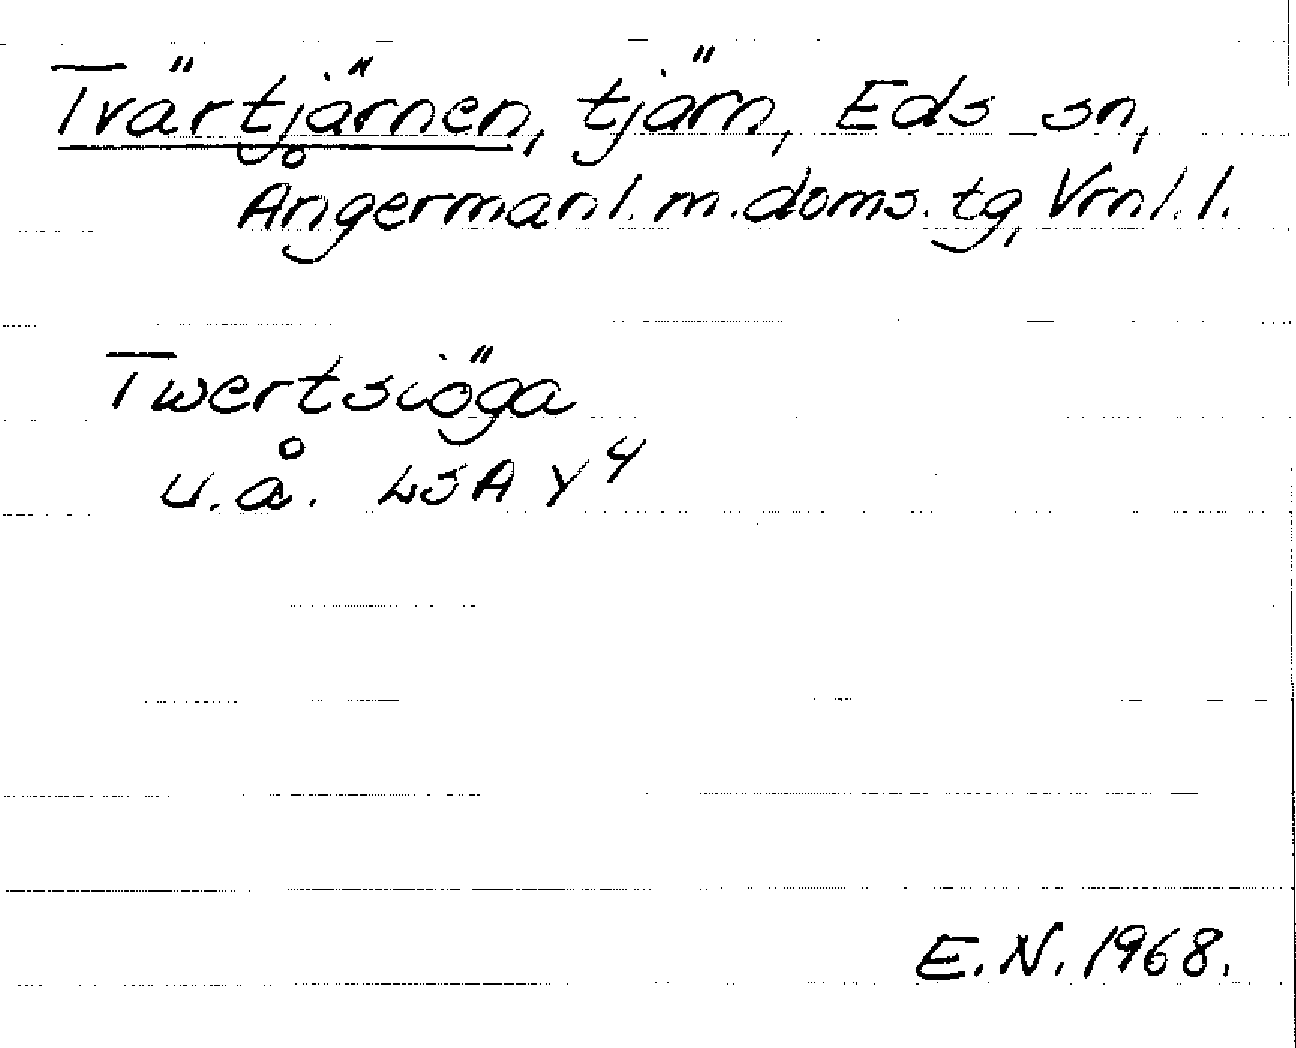 Tvärtjärnen, tjärn, Eds sn,
Ångermanl. m. doms. tg, Vrnl. l.
Twertsiöga
u.å. LSA Y 4
E.N. 1968.